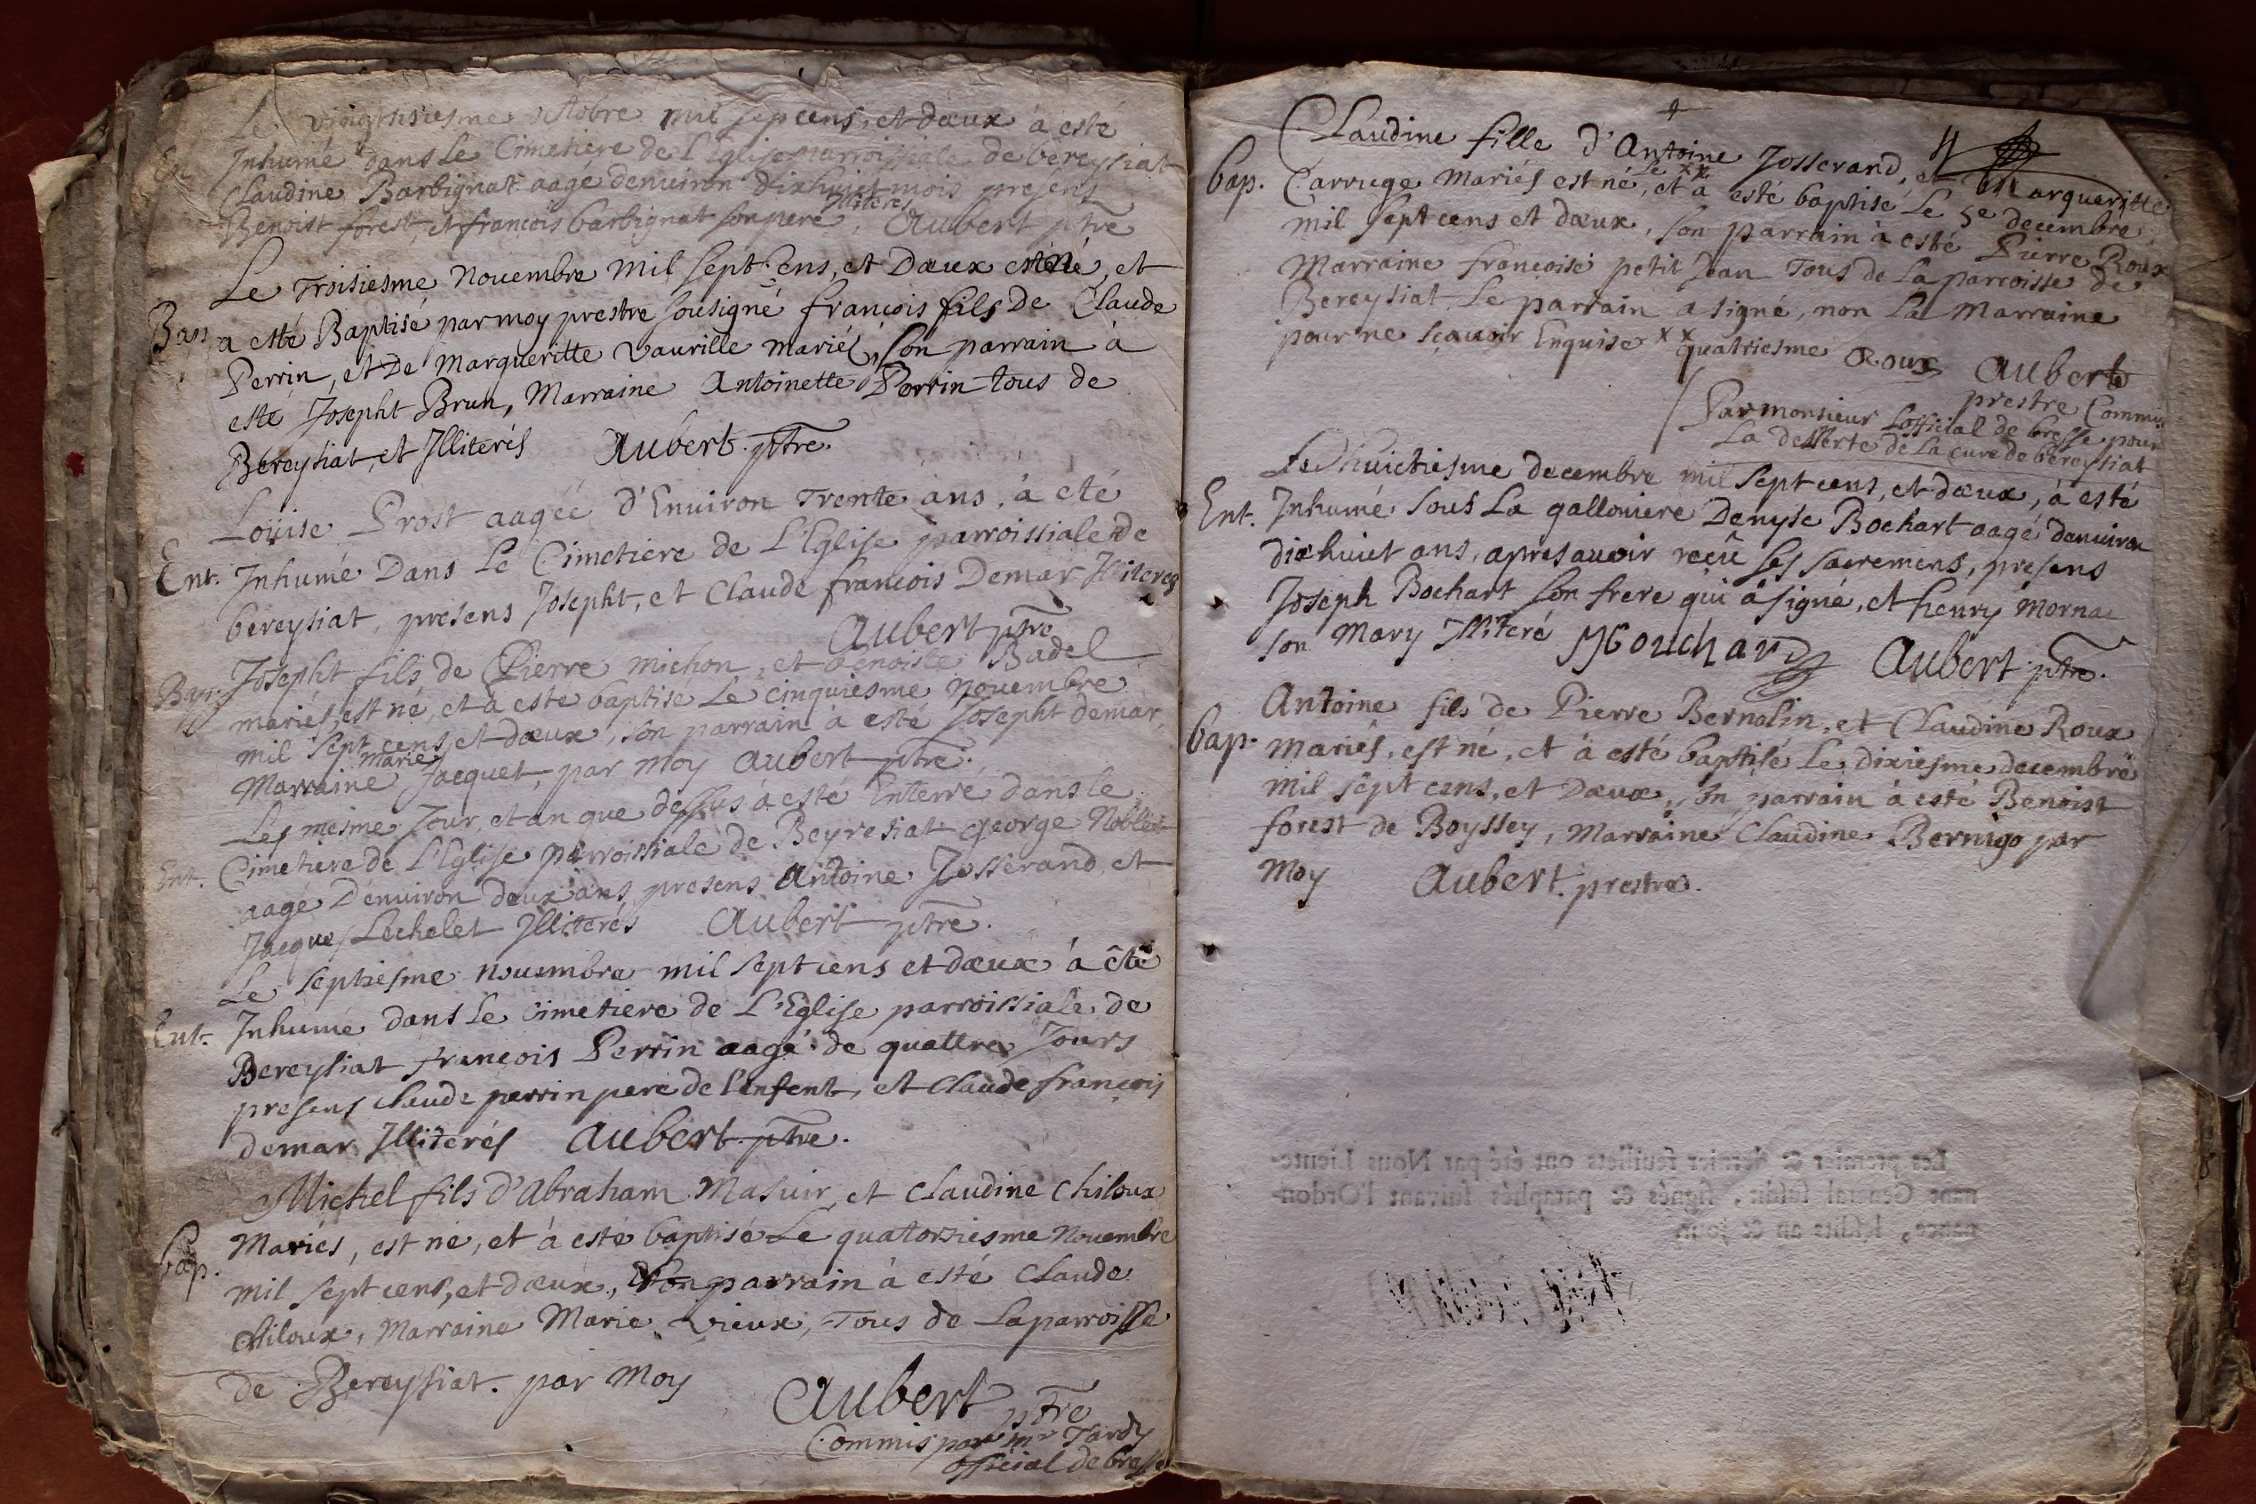 Le vingtsiesme octobre mil sept cens, et dœux à esté
Ent. Inhumé dans Le Cimetiere de L'Eglise parroissiale de bereysiat
Claudine Barbignat aagé denviron dixhuict mois presens
Illiterés
Benoist forest, et francois barbignat son pere, Aubert ptre
Le Troisiesme Novembre mil sept cens, et Dœux est né, et
Bap. a esté Baptisé par moy prestre sousigné francois fils De Claude
Perrin, et De Margueritte Vaurille mariés, Son parrain à
esté Josepht Brun, Marraine Antoinette Perrin tous de
Bereysiat, et Illiterés Aubert ptre.
Loüise Prost aagée d'Environ Trente ans, à eté
Ent. Inhumé Dans Le Cimetiere de L'Eglise parroissiale de
bereysiat, presens Josepht, et Claude francois Demar Illiterés
Aubert ptre
Josepht fils de Pierre michon, et Benoiste Badel
Bap. mariés, est né, et à esté baptisé Le cinquiesme novembre
mil sept cens, et dœux, son parrain à esté Josepht demar,
marie
Marraine Jacquet, par moy Aubert ptre.
Les mesme Jour, et an que dessus à esté Enterré dans le
Ent. Cimetiere de L'Eglise parroissiale de Beyresiat george Noblet
aagé D'environ deux ans, presens Antoine Josserand, et
Jacques Lechelet Illiterés Aubert ptre.
Le septiesme novembre mil sept cens et dœux à êté
Ent. Inhumé dans Le Cimetiere de L'Eglise parroissiale de
Bereysiat françois Perrin aagé de quattre Jours
presens claude perrin pere de l'enfent, et Claude françois
demar Illiterés Aubert ptre.
Michel fils d'Abraham Masuir, et Claudine Chiloux
bap. Mariés, est né, et à esté baptisé Le quatorsiesme Novembre
mil sept cens, et dœux, Son parrain à esté Claude
Chiloux, Marraine Marie Vieux, Tous de La parroisse
de Bereysiat. par Moy
Aubert ptre
Commis par mr Tardy
official de bresse
Claudine fille d'Antoine Josserand, et Margueritte
Le xx
bap. Carruge Mariés est né, et à esté baptisé Le 5e decembre
mil sept cens et dœux, son parrain à esté Pierre Roux
Marraine francoise petit Jean Tous de La parroisse de
Bereysiat Le parrain a signé, non La Marraine
pour ne sçavoir Enquise xx quatriesme Roux Aubert
prestre Commis
Par monsieur Lofficial de bresse pour
La desserte de La cure de bereysiat
Le Dhuictiesme decembre mil sept cens, et dœux, à esté
Ent. Inhumé sous La galloniere Denyse Bochart aagé denviron
dixhuict ans, apres avoir reçû ses sacremens, presens
Joseph Bochart son frere qui à signé, et henry morna
son Mary Illiteré Aubert ptre.
Antoine fils de Pierre Bernalin, et Claudine Roux
bap. Mariés, est né, et à esté baptisé Le dixiesme decembre
mil sept cens, et Dœux, son parrain à esté Benoist
forest de Boyssey, Marraine Claudine Bernigo par
Moy Aubert prestre.
Les premier & dernier feuillets ont été par Nous Lieute-
nant General susdit, signés & paraphés suivant l'Ordon-
nance, lesdits an & jour